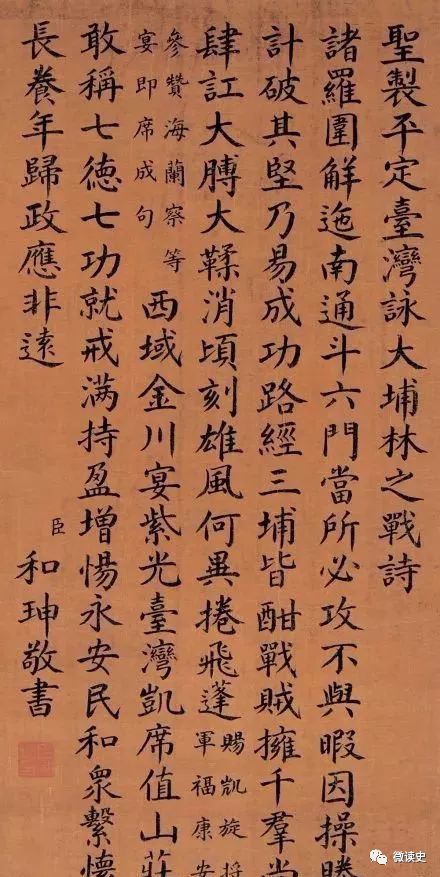 聖製平定臺灣詠大埔林之戰詩
諸羅圍解迤南通斗六門當所必攻不與暇因操勝
計破其堅乃易成功路經三埔皆酣戰賊擁千羣当
肆訌大膊大鞣消頃刻雄風何異捲飛蓬
賜凱旋将
軍福康安
參贊海蘭察等
宴即席成句
西域金川宴紫光臺灣凱席值山莊
敢稱七德七功就戒满持盈增惕永安民和衆繫懐
長養年歸政應非遠
臣
和珅敬書
微读史